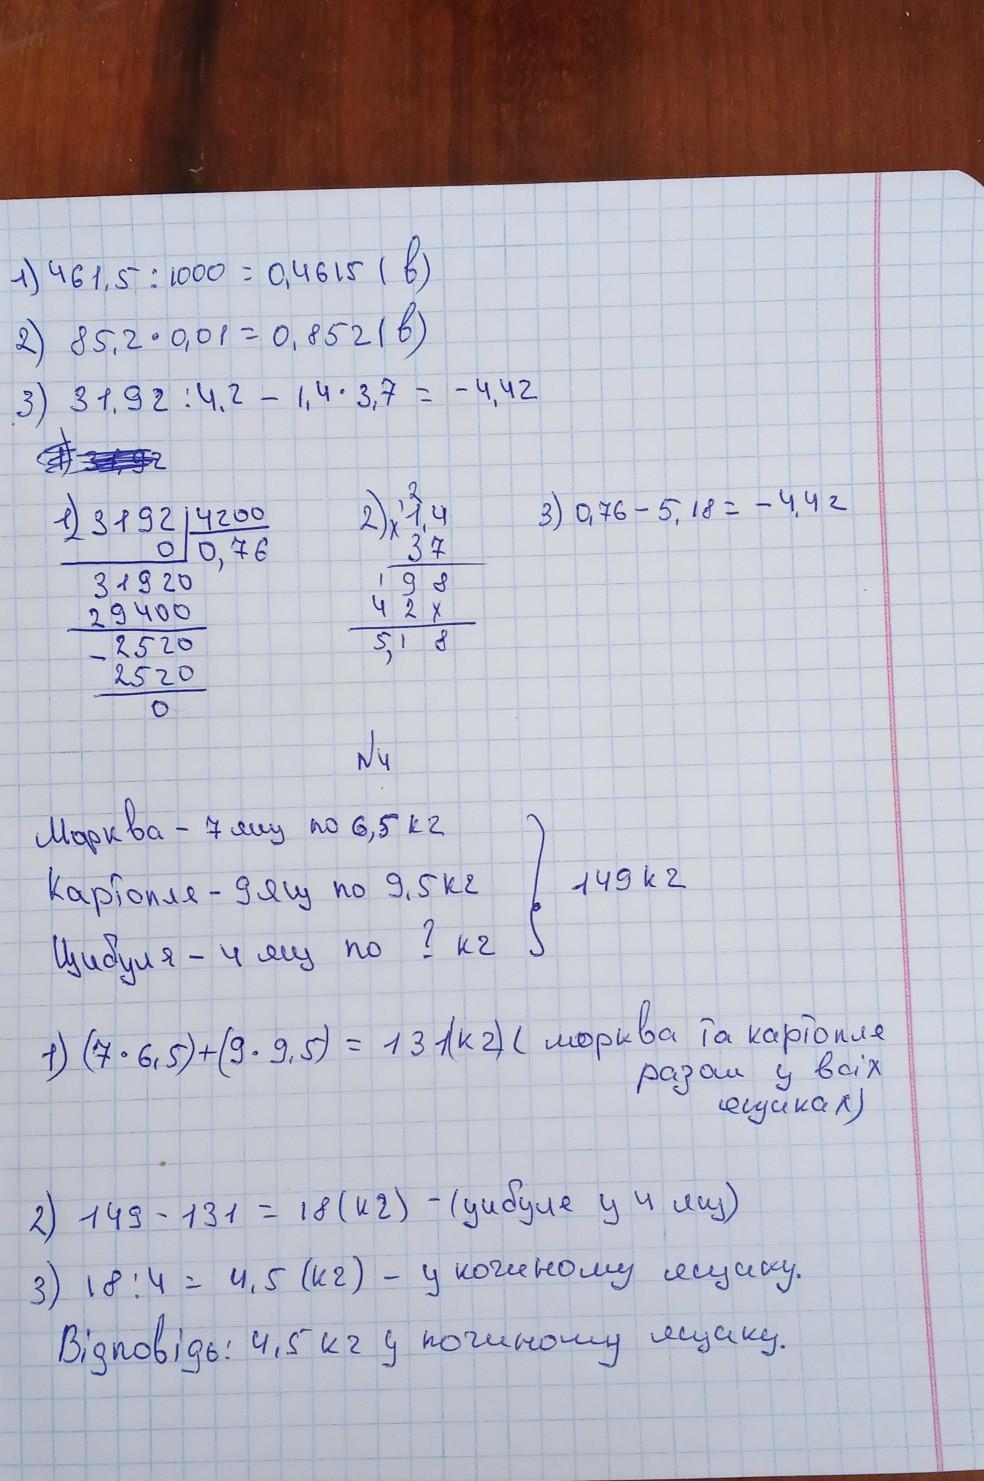 1) 461,5 : 1000 = 0,4615 ( в)
2) 85,2 · 0,01 = 0,852 ( в)
3) 31,92 : 4,2 - 1,4 · 3,7 = - 4,42
1) 3192 4200
0 0,76
31920
29400
- 2520
2520
0
2) x 1,4
37
198
42x
5,18
3) 0,76 - 5,18 = - 4,42
N4
Морква - 7 ящ по 6,5 кг
Картопля - 9 ящ по 9,5 кг
Цибуля - 4 ящ по ? кг
149 кг
1) (7 · 6,5) + (9 · 9,5) = 131(кг) ( морква та картопля
разом у всіх
ящиках)
2) 149 - 131 = 18 (кг) - (цибуля у 4 ящ)
3) 18 : 4 = 4,5 (кг) - у кожному ящику.
Відповідь: 4,5 кг у кожному ящику.